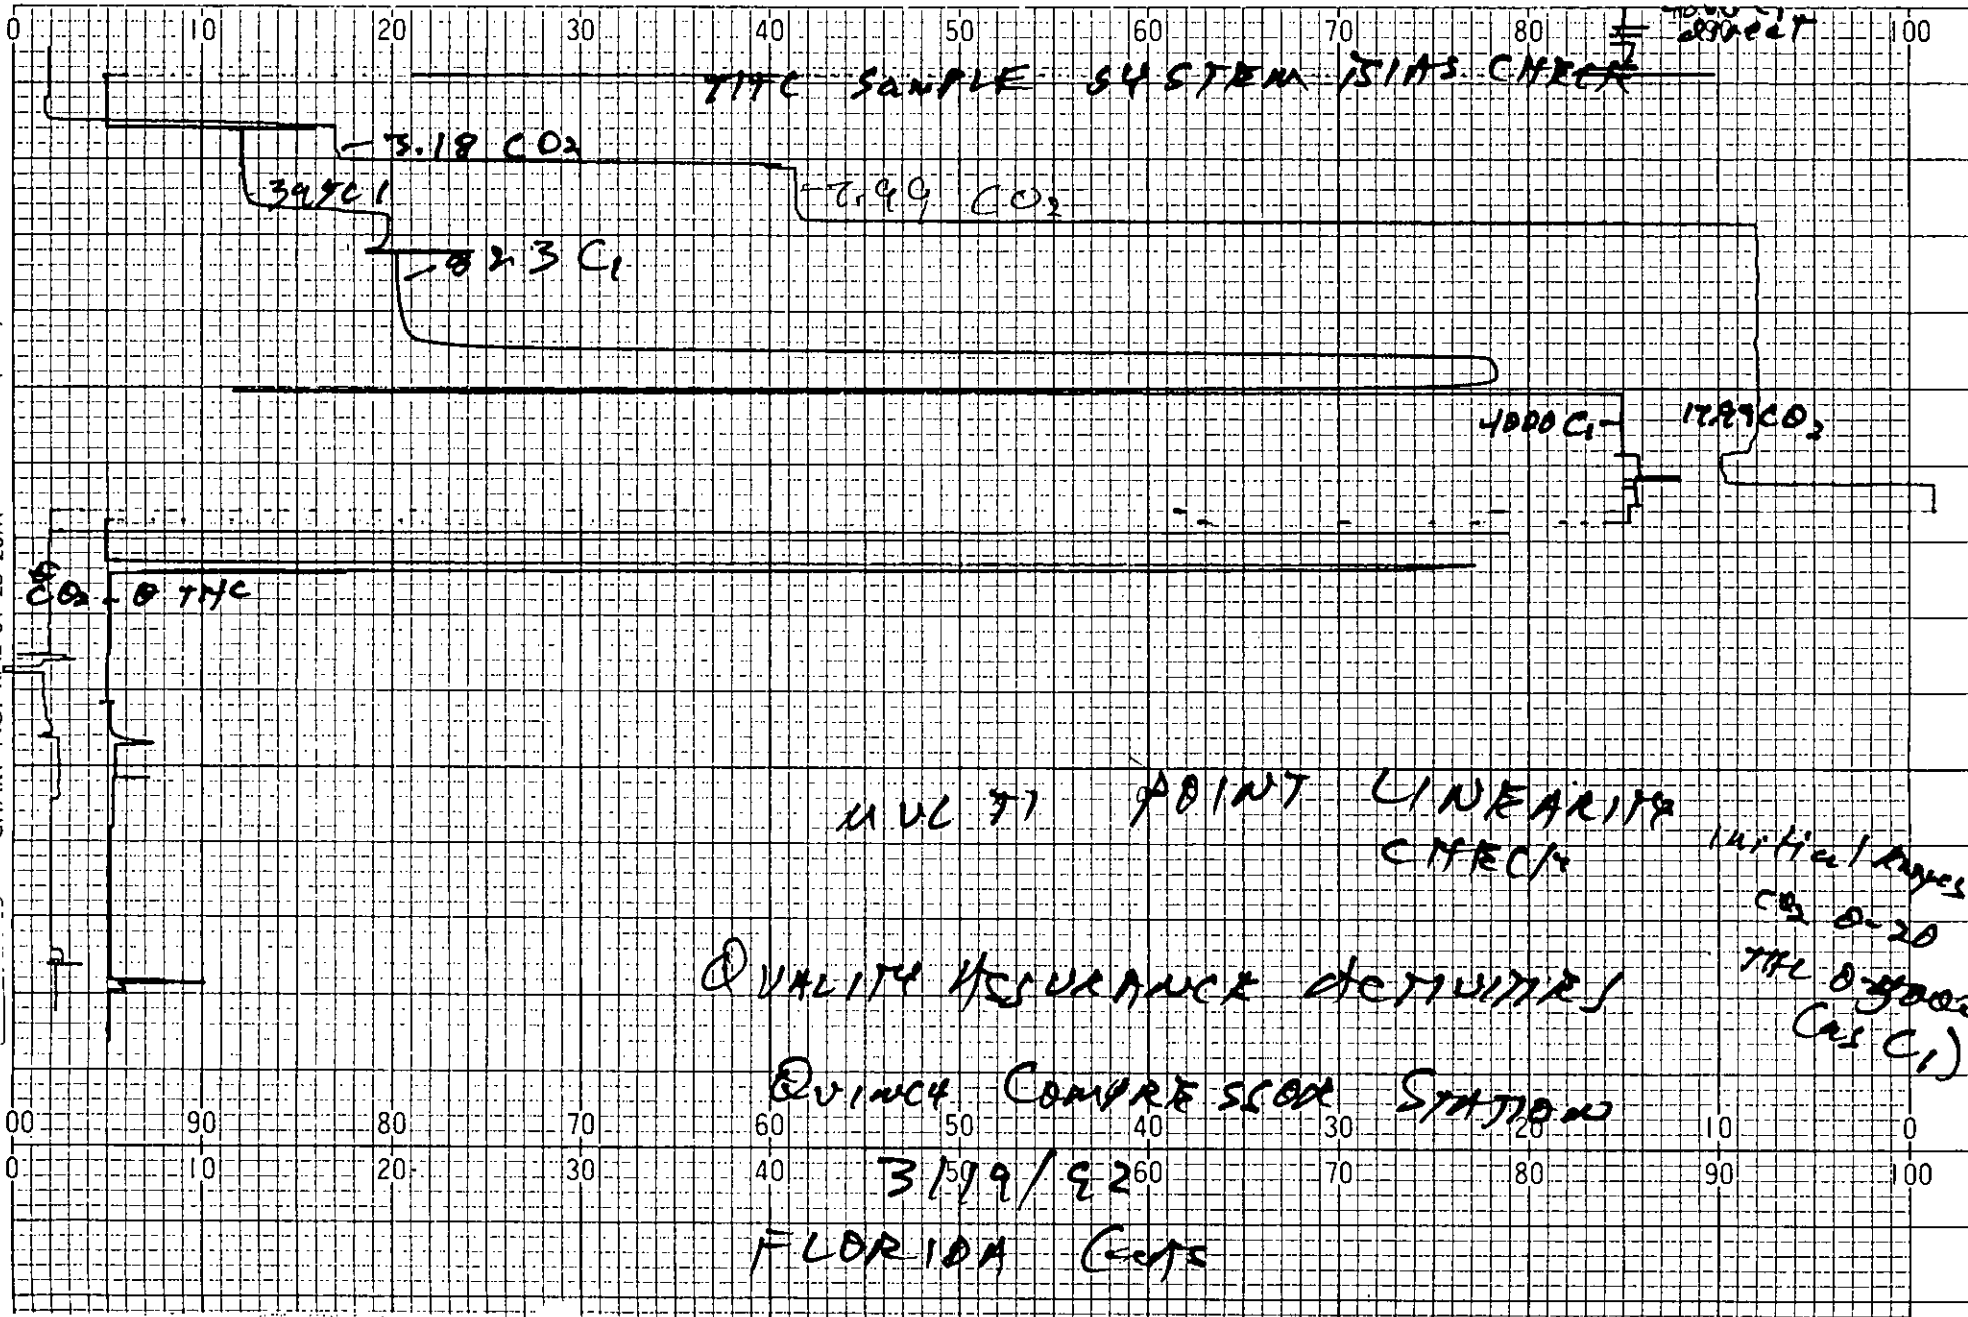 0 10 20 30 40 50 60 70 80 90 100
direct
THC SAMPLE SYSTEM BIAS CHECK
3.18 CO2
7.99 CO2
C1
C1
4000 C1
CO2
CO2 - 0 THC
MULTI POINT LINEARITY
CHECK
Initial Ranges
CO2 0-20
THC
(as C1)
QUALITY ASSURANCE ACTIVITIES
QUINCY COMPRESSOR STATION
00 90 80 70 60 50 40 30 20 10 0
0 10 20 30 40 50 60 70 80 90 100
3/19/92
FLORIDA